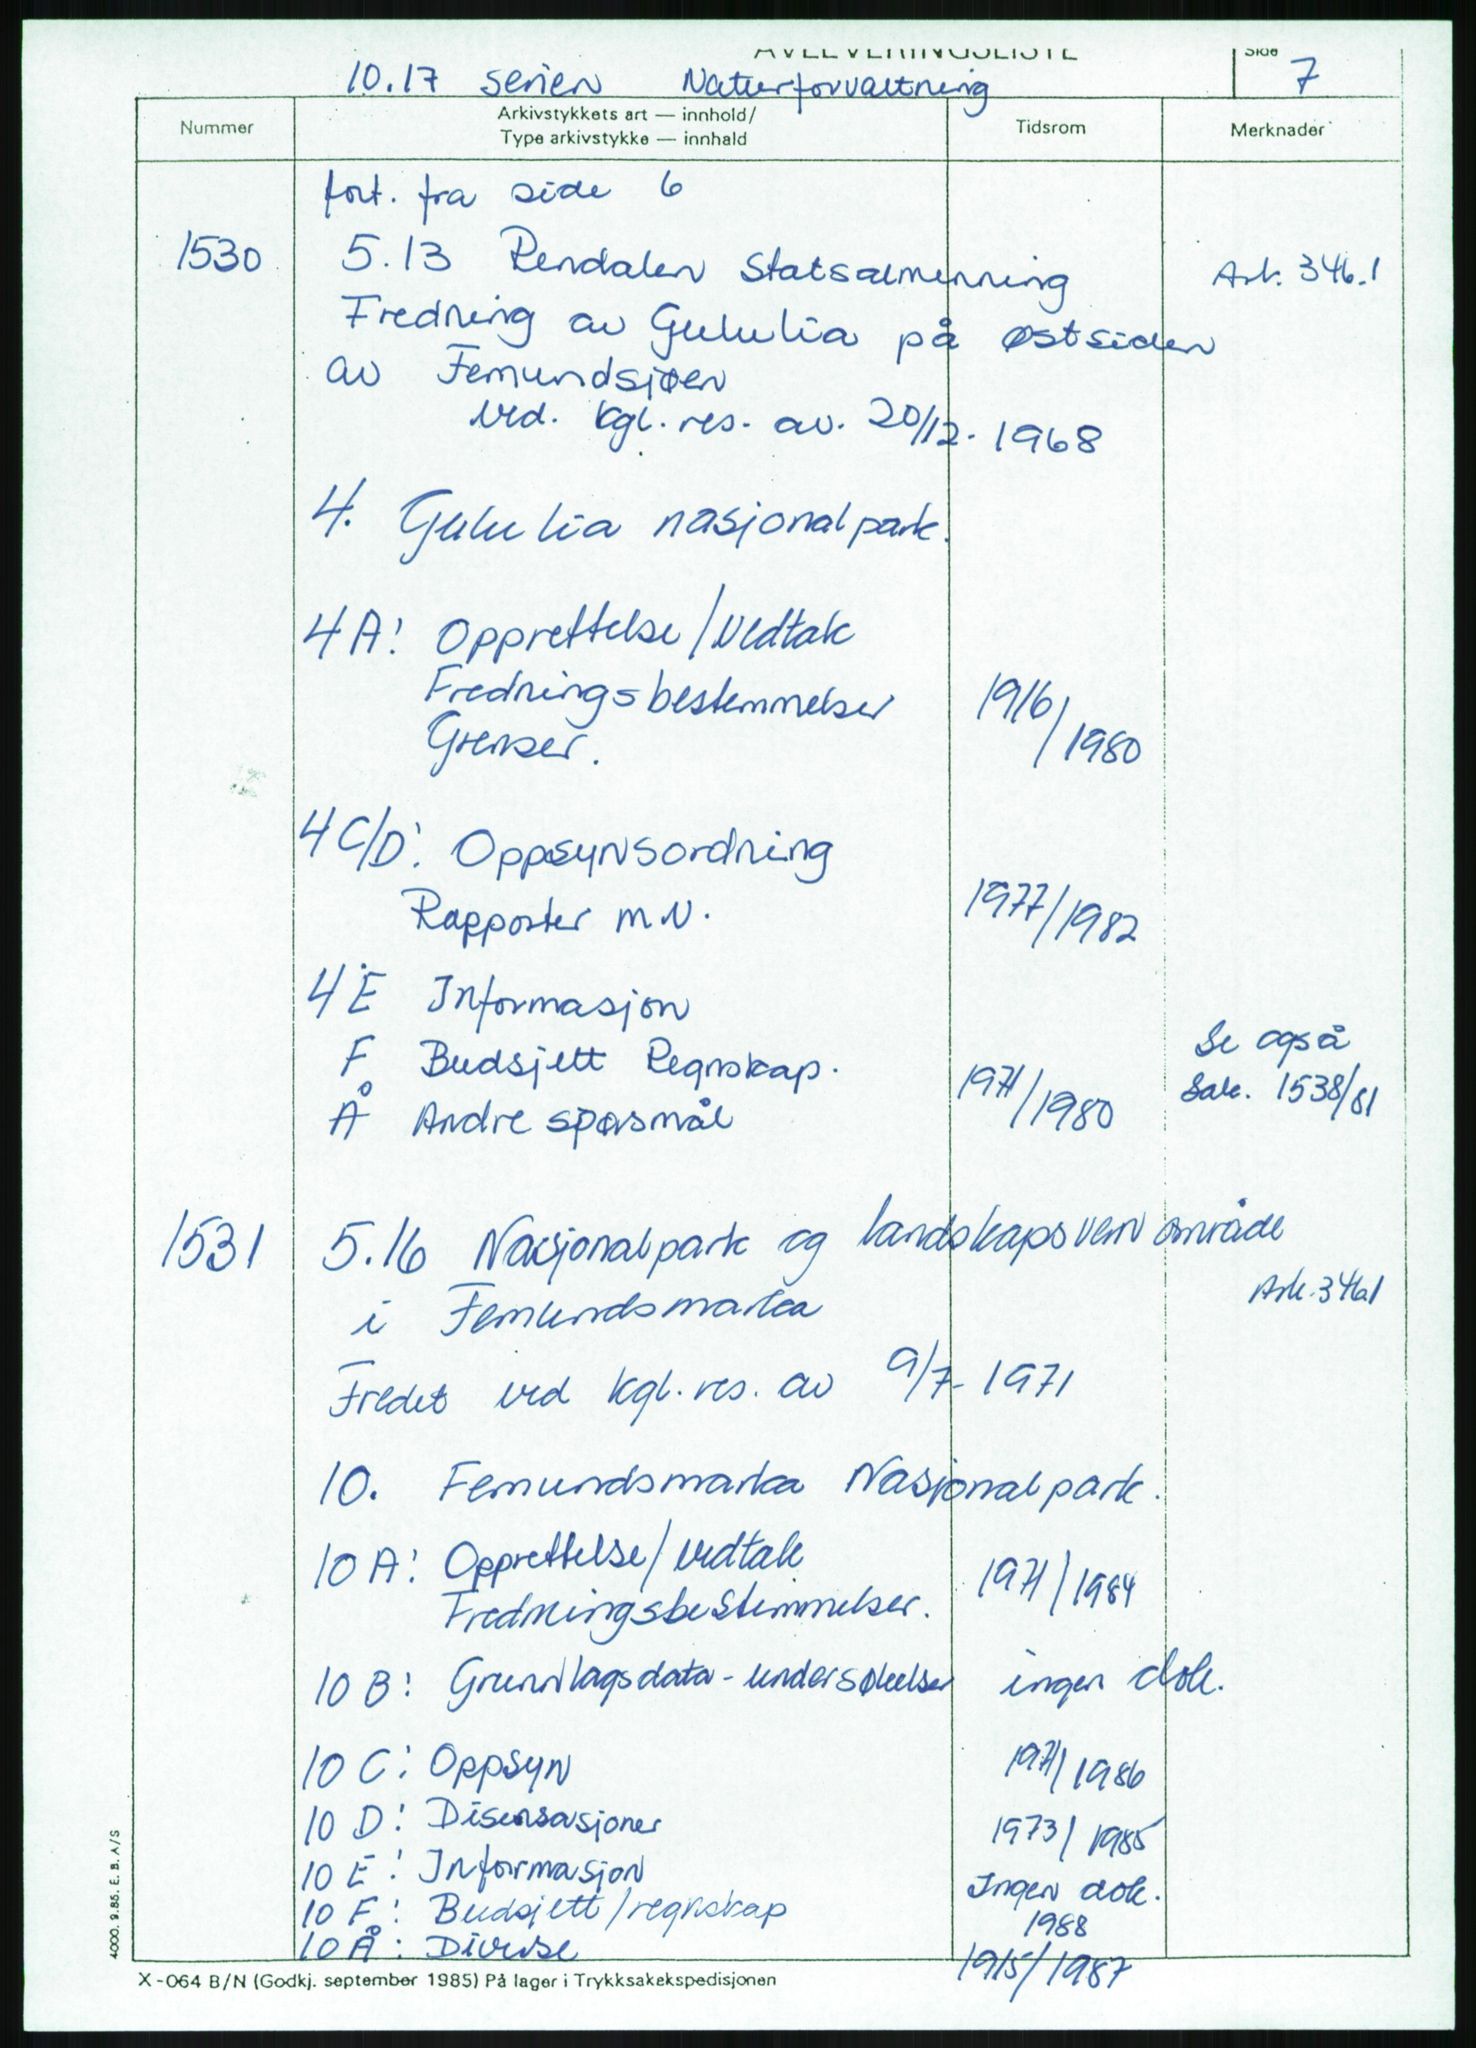 AVLEVERINGSLISTE
Side 7
10.17 serien Naturforvaltning
Nummer
Arkivstykkets art — innhold/
Type arkivstykke — innhald
Tidsrom
Merknader
fort. fra side 6
1530 5.13 Rendalen Statsalmenning Ark. 346.1
Fredning av Gulu lia på østsiden
av Femundsjøen
ved. kgl. res. av. 20/12. 1968
4. Gulu lia nasjonalpark.
4 A: Opprettelse/vedtak
Fredningsbestemmelser 1916/1980
Grenser.
4 C/D: Oppsynsordning
Rapporter m.v. 1977/1982
4 E Informasjon
F Budsjett Regnskap. 1971/1980 Se også
Å Andre spørsmål Sak. 1538/81
1531 5.16 Nasjonalpark og landskapsvern område
i Femundsmarka Ark. 346.1
Fredet ved kgl. res. av 9/7- 1971
10. Femundsmarka Nasjonalpark.
10 A: Opprettelse/vedtak 1971/1984
Fredningsbestemmelser.
10 B: Grunnlagsdata - undersøkelser ingen dok.
10 C: Oppsyn 1971/1986
10 D: Disensasjoner 1973/1985
10 E: Informasjon Ingen dok.
10 F: Budsjett/regnskap 1988
10 Å: Diverse 1915/1987
X-064 B/N (Godkj. september 1985) På lager i Trykksakekspedisjonen
4000. 9.85. E. B. A/S